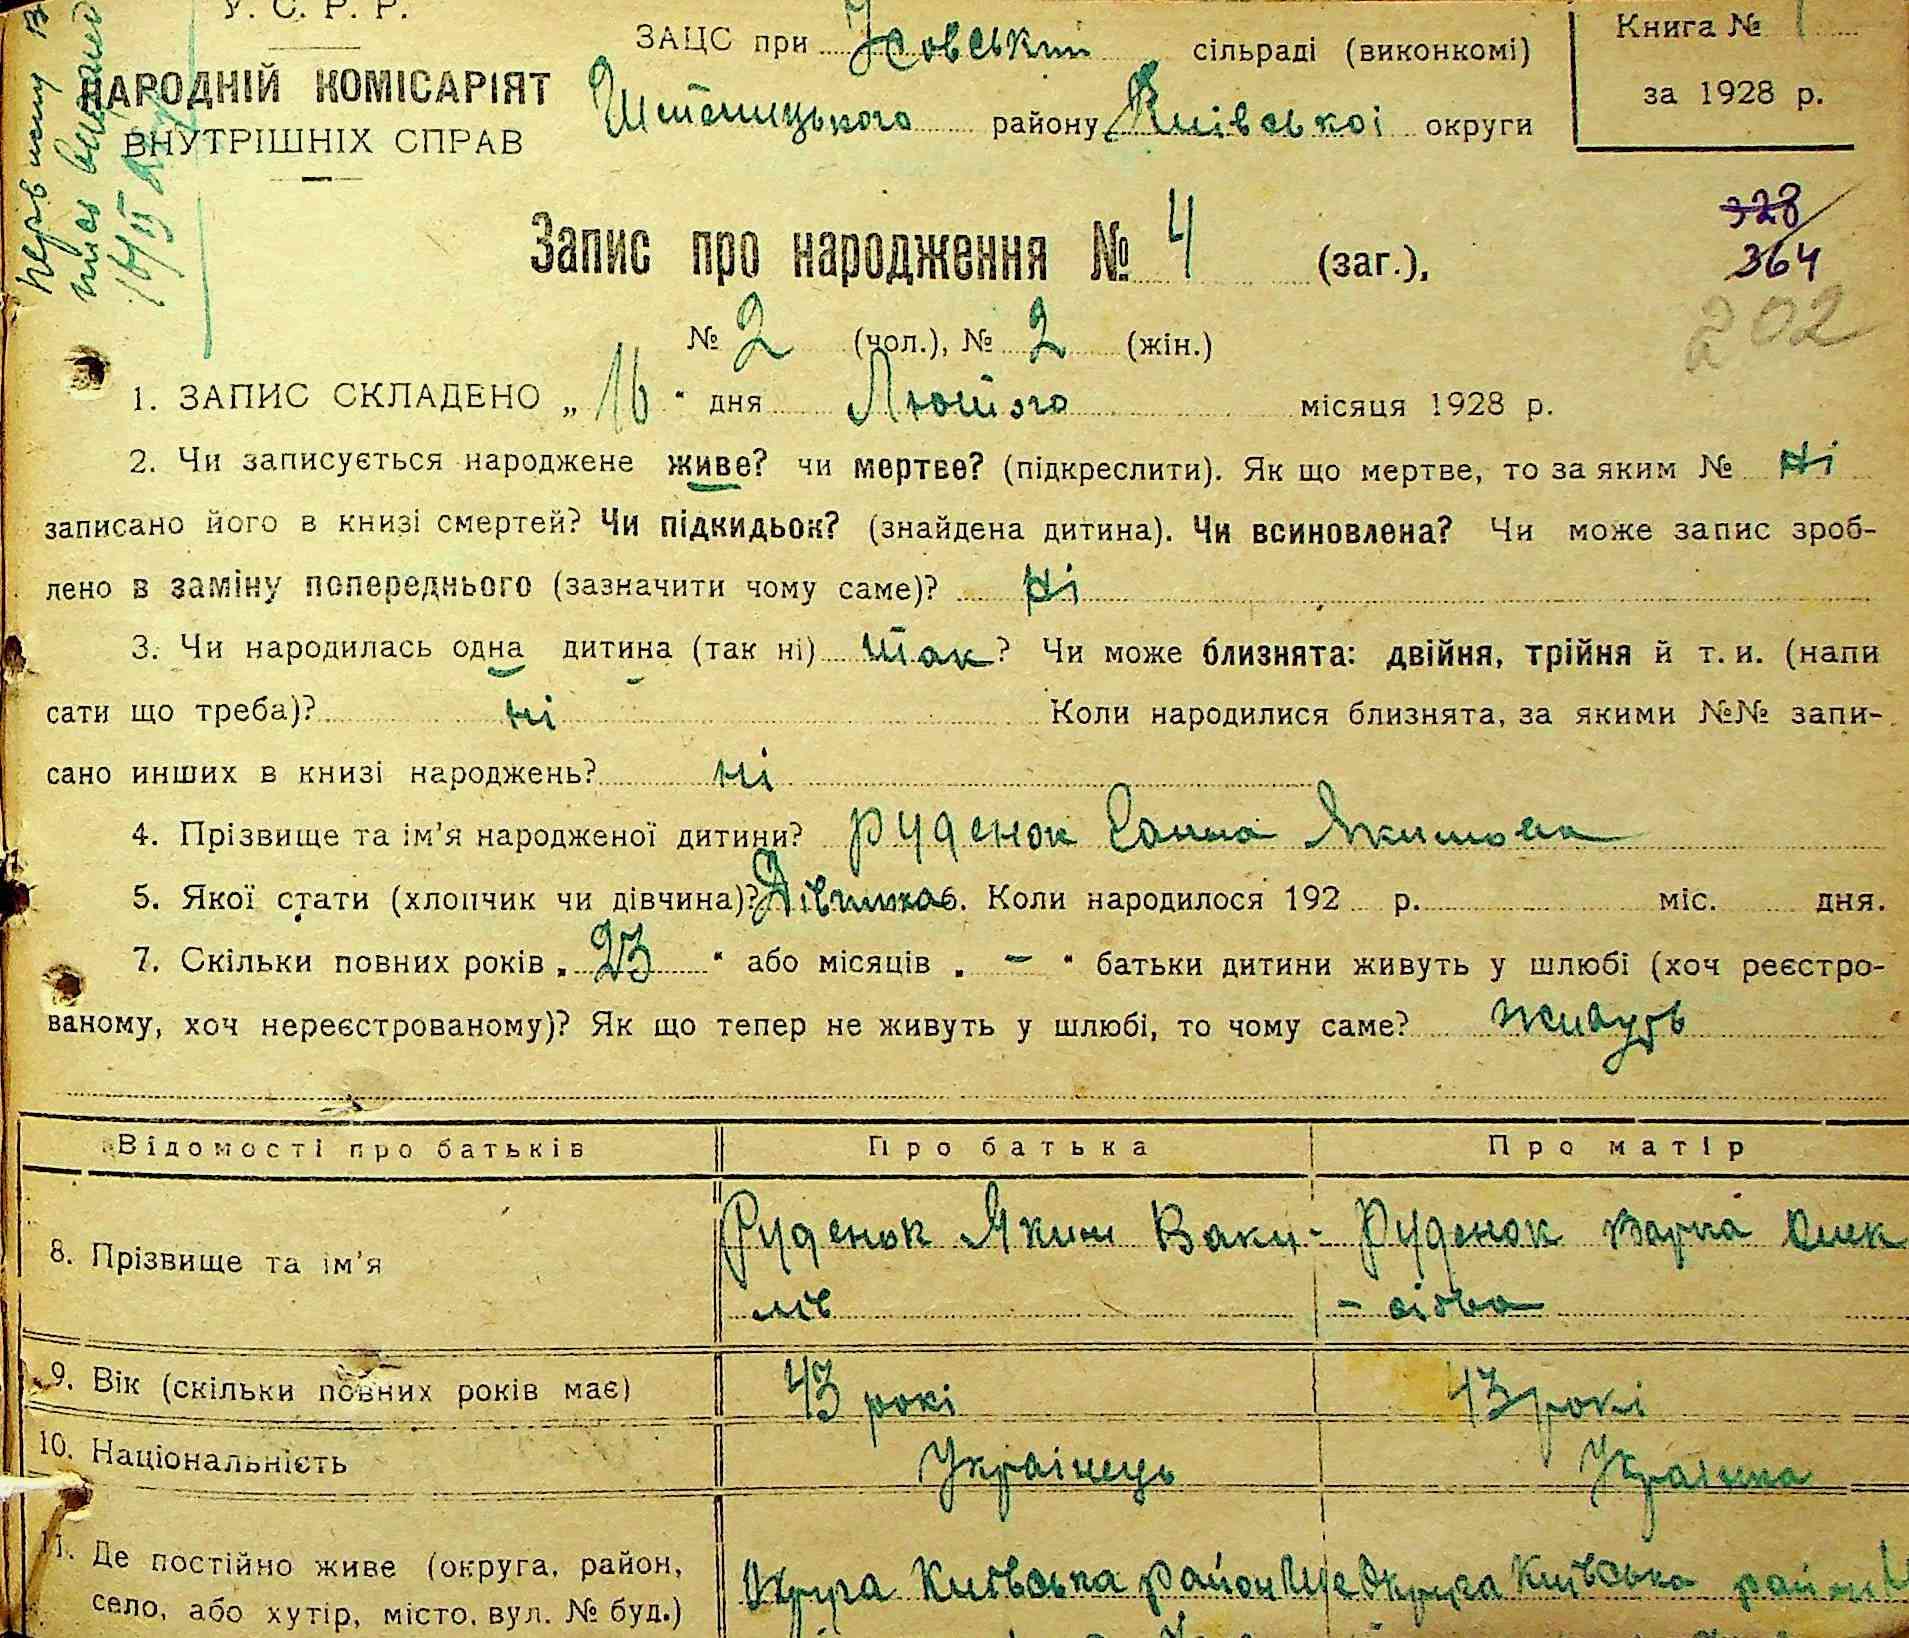 У. С. Р. Р.
НАРОДНІЙ КОМІСАРІЯТ
ВНУТРІШНІХ СПРАВ
ЗАЦС при сільраді (виконкомі)
району Київської округи
Книга № 1
за 1928 р.
Запис про народження № 4 (заг.),
328
364
202
№ 2 (чол.), № 2 (жін.)
1. ЗАПИС СКЛАДЕНО „ 16 " дня Лютого місяця 1928 р.
2. Чи записується народжене живе? чи мертве? (підкреслити). Як що мертве, то за яким № ні
записано його в книзі смертей? Чи підкидьок? (знайдена дитина). Чи всиновлена? Чи може запис зроб-
лено в заміну попереднього (зазначити чому саме)? ні
3. Чи народилась одна дитина (так ні) так ? Чи може близнята: двійня, трійня й т. и. (напи
сати що треба)? ні Коли народилися близнята, за якими №№ запи-
сано инших в книзі народжень? ні
4. Прізвище та ім'я народженої дитини? Руденок Ганна Якимова
5. Якої стати (хлопчик чи дівчина)? Дівчина 6. Коли народилося 192 р. міс. дня.
7. Скільки повних років „ 23 " або місяців „ – " батьки дитини живуть у шлюбі (хоч реєстро-
ваному, хоч нереєстрованому)? Як що тепер не живуть у шлюбі, то чому саме? живуть
Відомості про батьків Про батька Про матір
8. Прізвище та ім'я Руденок Яким Руденок Варка
9. Вік (скільки повних років має) 43 рокі 43 рокі
10. Національність Українець Українка
11. Де постійно живе (округа, район, Округа Київська район Округа Київська район
село, або хутір, місто, вул. № буд.)